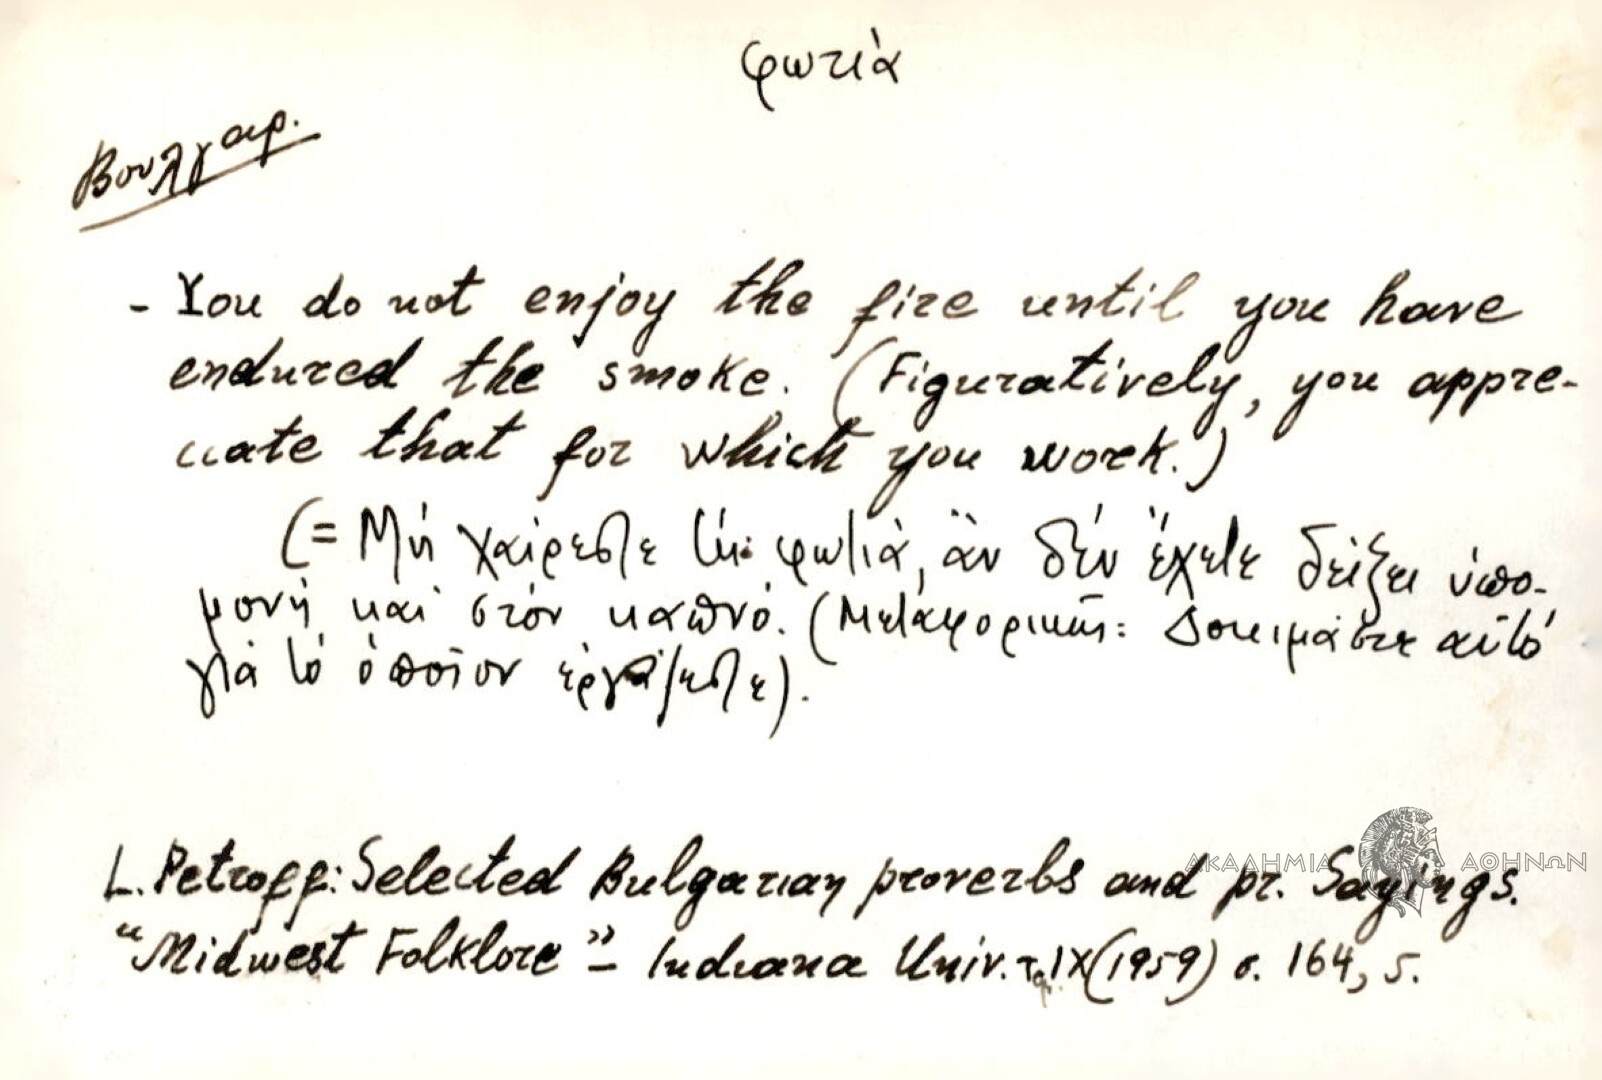 φωτιὰ
Βουλγαρ.
- You do not enjoy the fire until you have
endured the smoke. (Figuratively, you appre-
ciate that for which you work.)
(= Μὴ χαίρεστε τὴ φωτιὰ, ἂν δὲν ἔχετε δείξει ὑπο-
μονὴ καὶ στὸν καπνό. (Μεταφορικῆς: Δοκιμάστε αὐτὸ
γιὰ τὸ ὁποῖον ἐργάζεστε).
L. Petroff: Selected Bulgarian proverbs and pr. Sayings.
"Midwest Folklore" - Indiana Univ. τ. IX (1959) σ. 164, 5.
ΑΚΑΔΗΜΙΑ ΑΘΗΝΩΝ